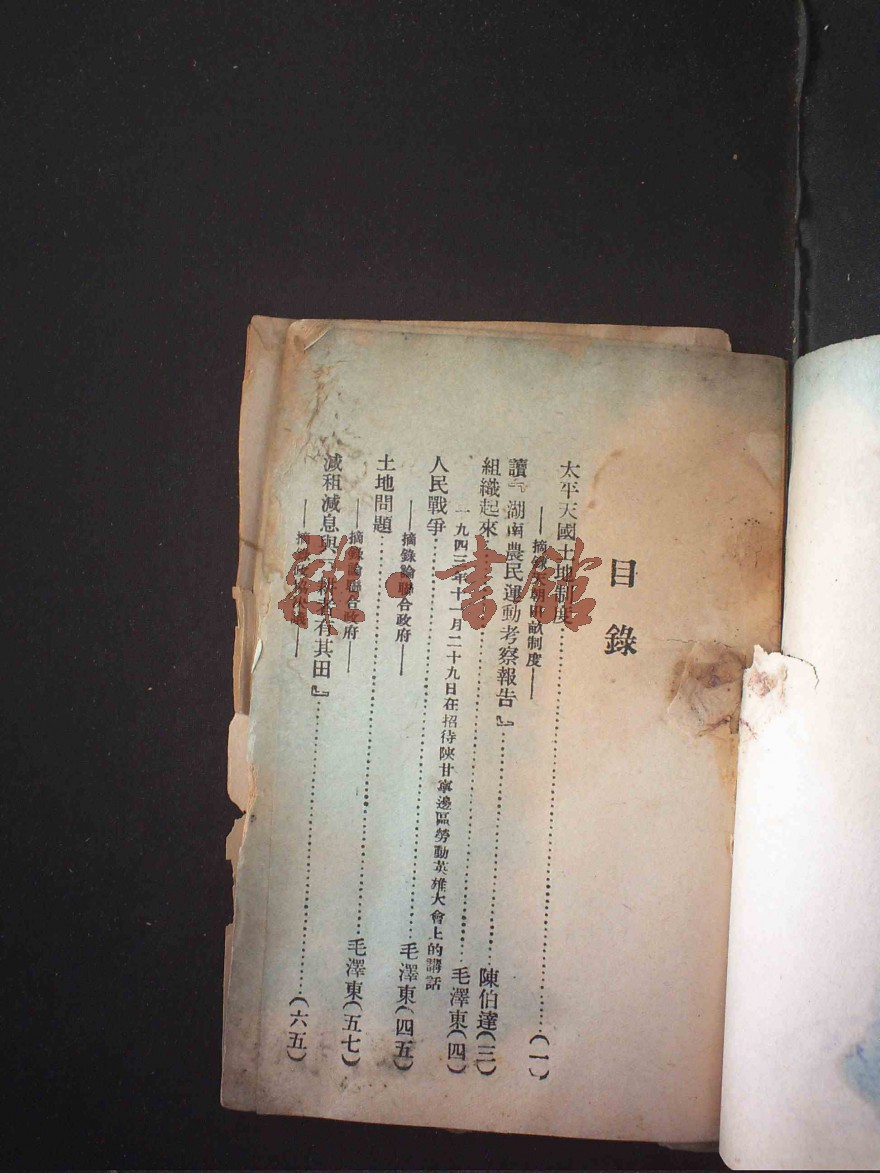 目錄
太平天國土地制度……(一)
——摘錄天朝田畝制度——
讀『湖南農民運動考察報告』……陳伯達(三)
組織起來……毛澤東(四)
一九四三年十一月二十九日在招待陝甘寧邊區勞動英雄大會上的講話
人民戰爭……毛澤東(四五)
——摘錄論聯合政府——
土地問題……毛澤東(五七)
——摘錄論聯合政府——
減租減息與『耕者有其田』……(六五)
——摘錄政協決議——
雜·書館